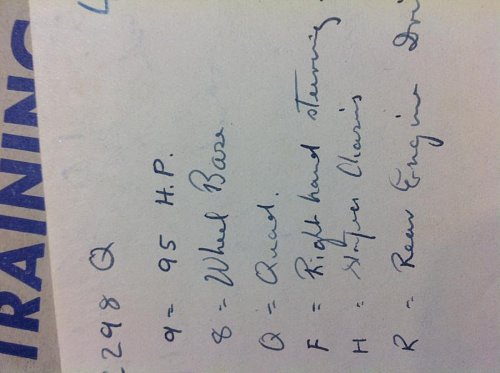 TRAINING
C298 Q
9 = 95 H.P.
8 = Wheel Base
Q = Quad.
F = Right hand steering
H = Chasis
R = Rear Engine Dri